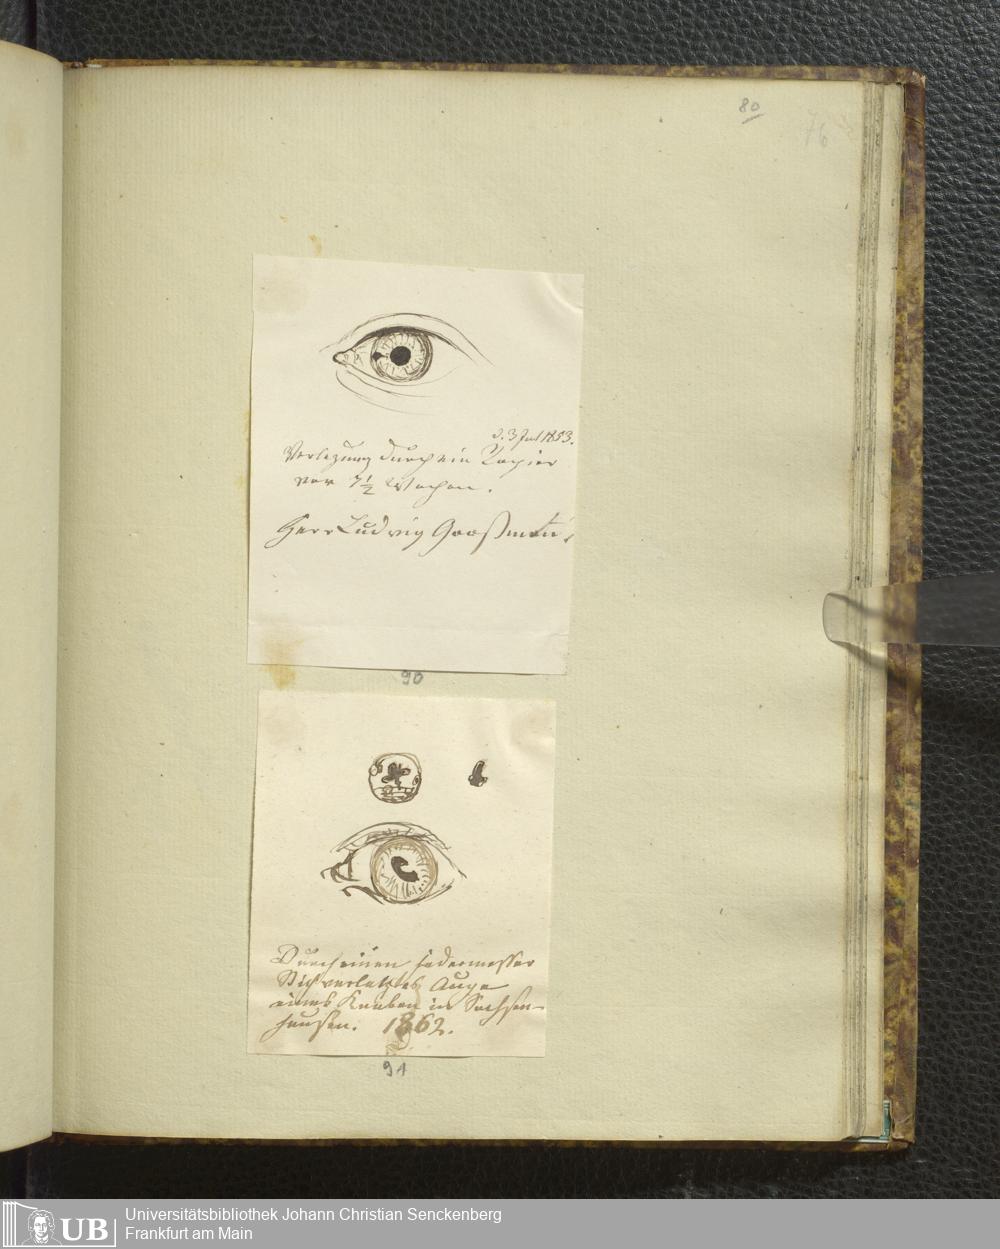 80
76
d. 3 Jul 1853.
Verlezung durch ein Rapier
vor 7 1/2 Wochen.
Herr Ludwig
90
Durch einen Federmesser
Stich verletztes Auge
eines Knaben in Sachsen-
hausen. 1862.
91
UB
Universitätsbibliothek Johann Christian Senckenberg
Frankfurt am Main